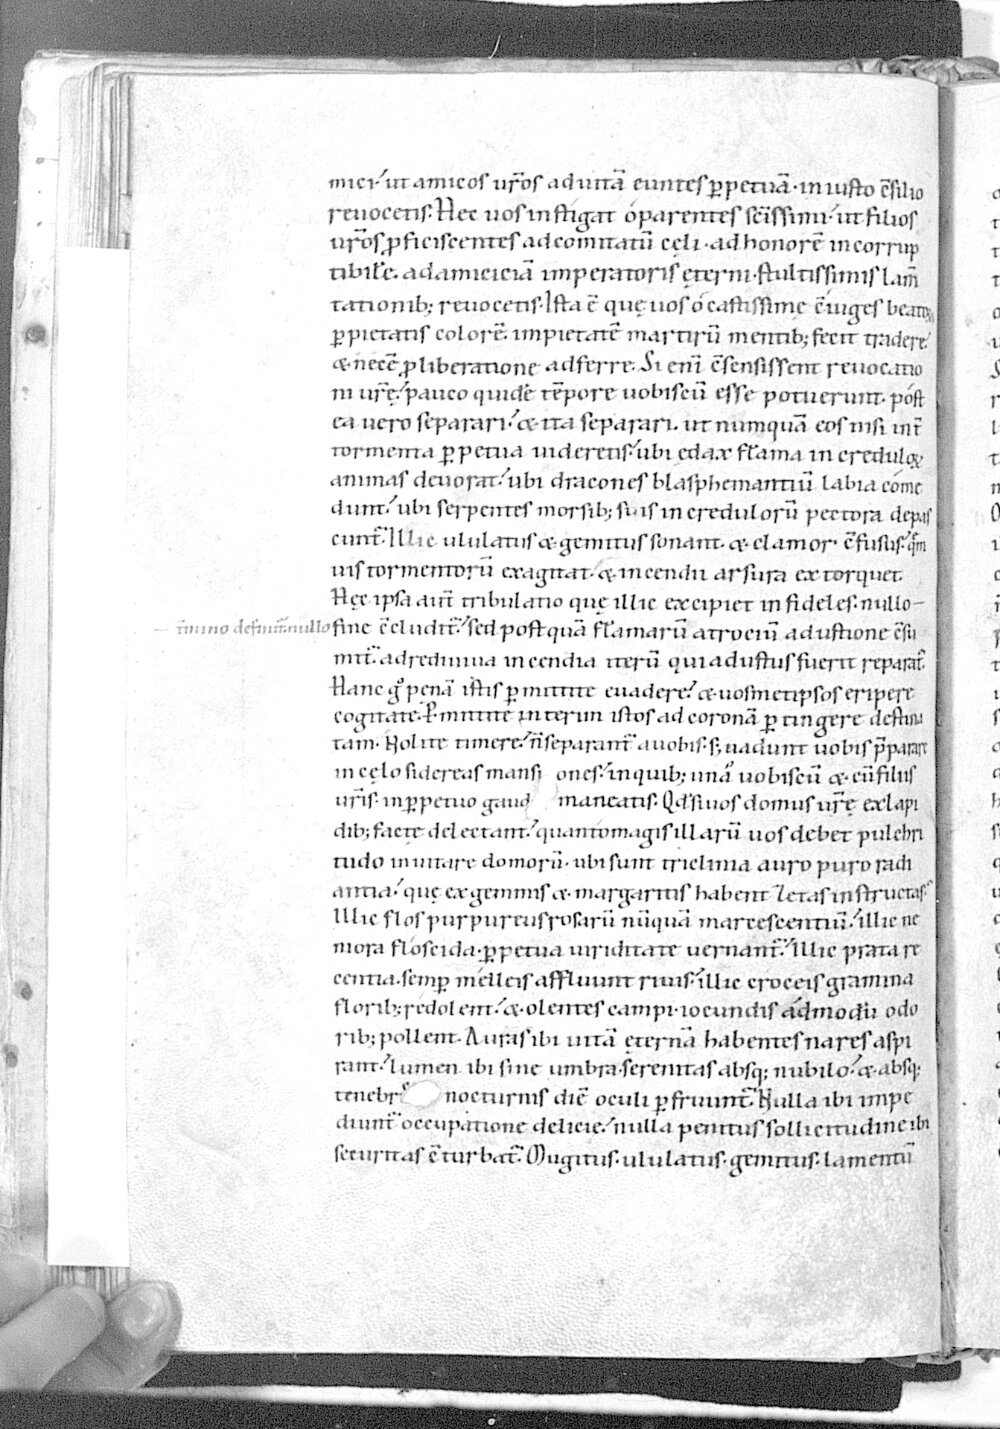 mici. ut amicos ur̄os ad uitā euntes ꝑpetuā. iniusto c̄silio
reuocetis. Hec uos instigat o parentes sc̄issimi. ut filios
ur̄os ꝓficiscentes ad comitatū cęli. ad honorē incorrup
tibilē. ad amiciciā imperatoris ęterni. stultissimis lam̄
tationib; reuocetis. Ista ē quę uos o castissimę c̄iuges beatoꝝ
ꝑ pietatis colorē. impietatē martirū mentib; fecit tradere.
& necē ꝓ liberatione adferre. Si eni c̄sensissent reuocatio
ni ur̄ę. pauco quidē tēpore uobiscū esse potuerunt. post
ea uero separari. & ita separari. ut numquā eos nisi int̄
tormenta ꝑpetua uideretis. ubi edax flāma incredulas
animas deuorat. ubi dracones blasphemantiū labia come
dunt. ubi serpentes morsib; suis incredulorū pectora depas
cunt̄. Illic ululatus & gemitus sonant. & clamor c̄fusus. quē
uis tormentorū exagitat. & incendii arsura extorquet.
Hęc ipsa aut̄ tribulatio quę illic excipiet infideles. nullo
t̄mino definit̄. nullo fine c̄cludit̄. sed postquā flāmarū atrociū adustione c̄su
mit̄. ad rediuiua incendia iterū qui adustus fuerit reparat̄.
Hanc gͦ penā istis ꝑmittite euadere. & uosmetipsos eripere
cogitate. Pmittite interim istos ad coronā ꝑtingere destina
tam. Nolite timere. n̄ separant̄ a uobis. s; uadunt uobis p̄parare
in cęlo sidereas mansiones. in quib; unā uobiscū & cū filiis
ur̄is. in ꝑpetuo gaud maneatis. Qd̄ si uos domus ur̄ę ex lapi
dib; factę delectant. quanto magis illarū uos debet pulchri
tudo inuitare domorū. ubi sunt triclinia auro puro radi
antia. quę ex gemmis & margaritis habent zetas instructas.
Illic flos purpureus rosarū nūquā marcescentiū. illic ne
mora floscida. ꝑpetua uiriditate uernant̄. Illic prata re
centia. semꝑ melleis affluunt riuis. illic croceis gramina
florib; redolent. & olentes campi. iocundis admodū odo
rib; pollent. Auras ibi uitā ęternā habentes nares aspi
rant. lumen ibi sine umbra. serenitas absq; nubilo. & absq;
tenebris nocturnis diē oculi ꝑfruunt̄. Nulla ibi impe
diunt̄ occupatione delicię. nulla penitus sollicitudine ibi
securitas c̄turbat̄. Mugitus. ululatus. gemitus. lamentū